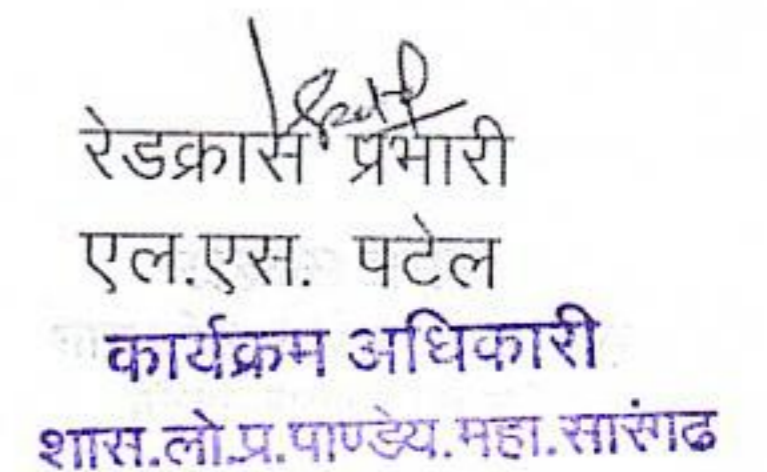 रेडक्रास प्रभारी
एल.एस. पटेल
कार्यक्रम अधिकारी
शास.लो.प्र.पाण्डेय.महा.सारंगढ